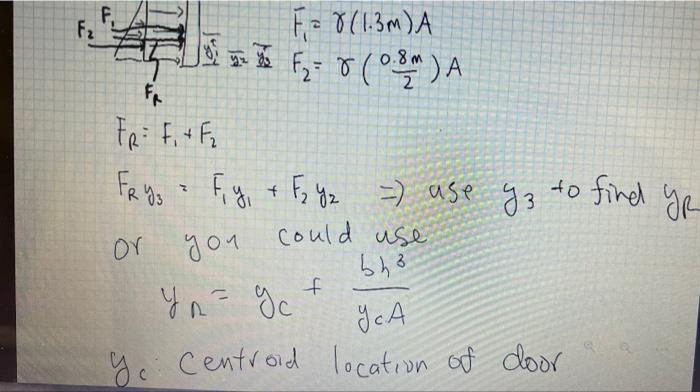 F₁ F₁ = γ(1.3m)A
F₂ ȳ₁ ȳ₂ ȳ₃ F₂ = γ(0.8m/2)A
F_R
F_R = F₁ + F₂
F_R y₃ = F₁y₁ + F₂y₂ => use y₃ to find y_R
or you could use
y_R = y_c + bh³/y_cA
y_c: centroid location of door